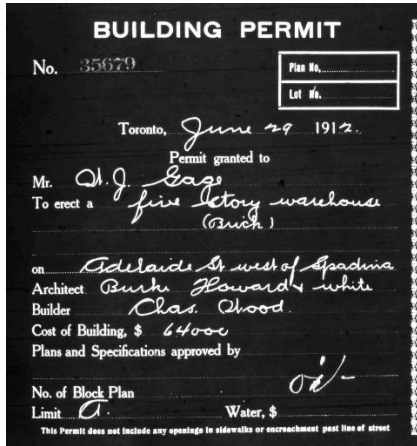 BUILDING PERMIT
No. 35679
Plan No,
Lot No.
Toronto, June 29 1912.
Permit granted to
Mr. W. J. Gage
To erect a five story warehouse
(Brick)
on Adelaide St west of Spadina
Architect Burke Howard & White
Builder Chas. Wood.
Cost of Building, $ 64000
Plans and Specifications approved by
No. of Block Plan
Limit A. Water, $
This Permit does not include any openings in sidewalks or encroachment past line of street